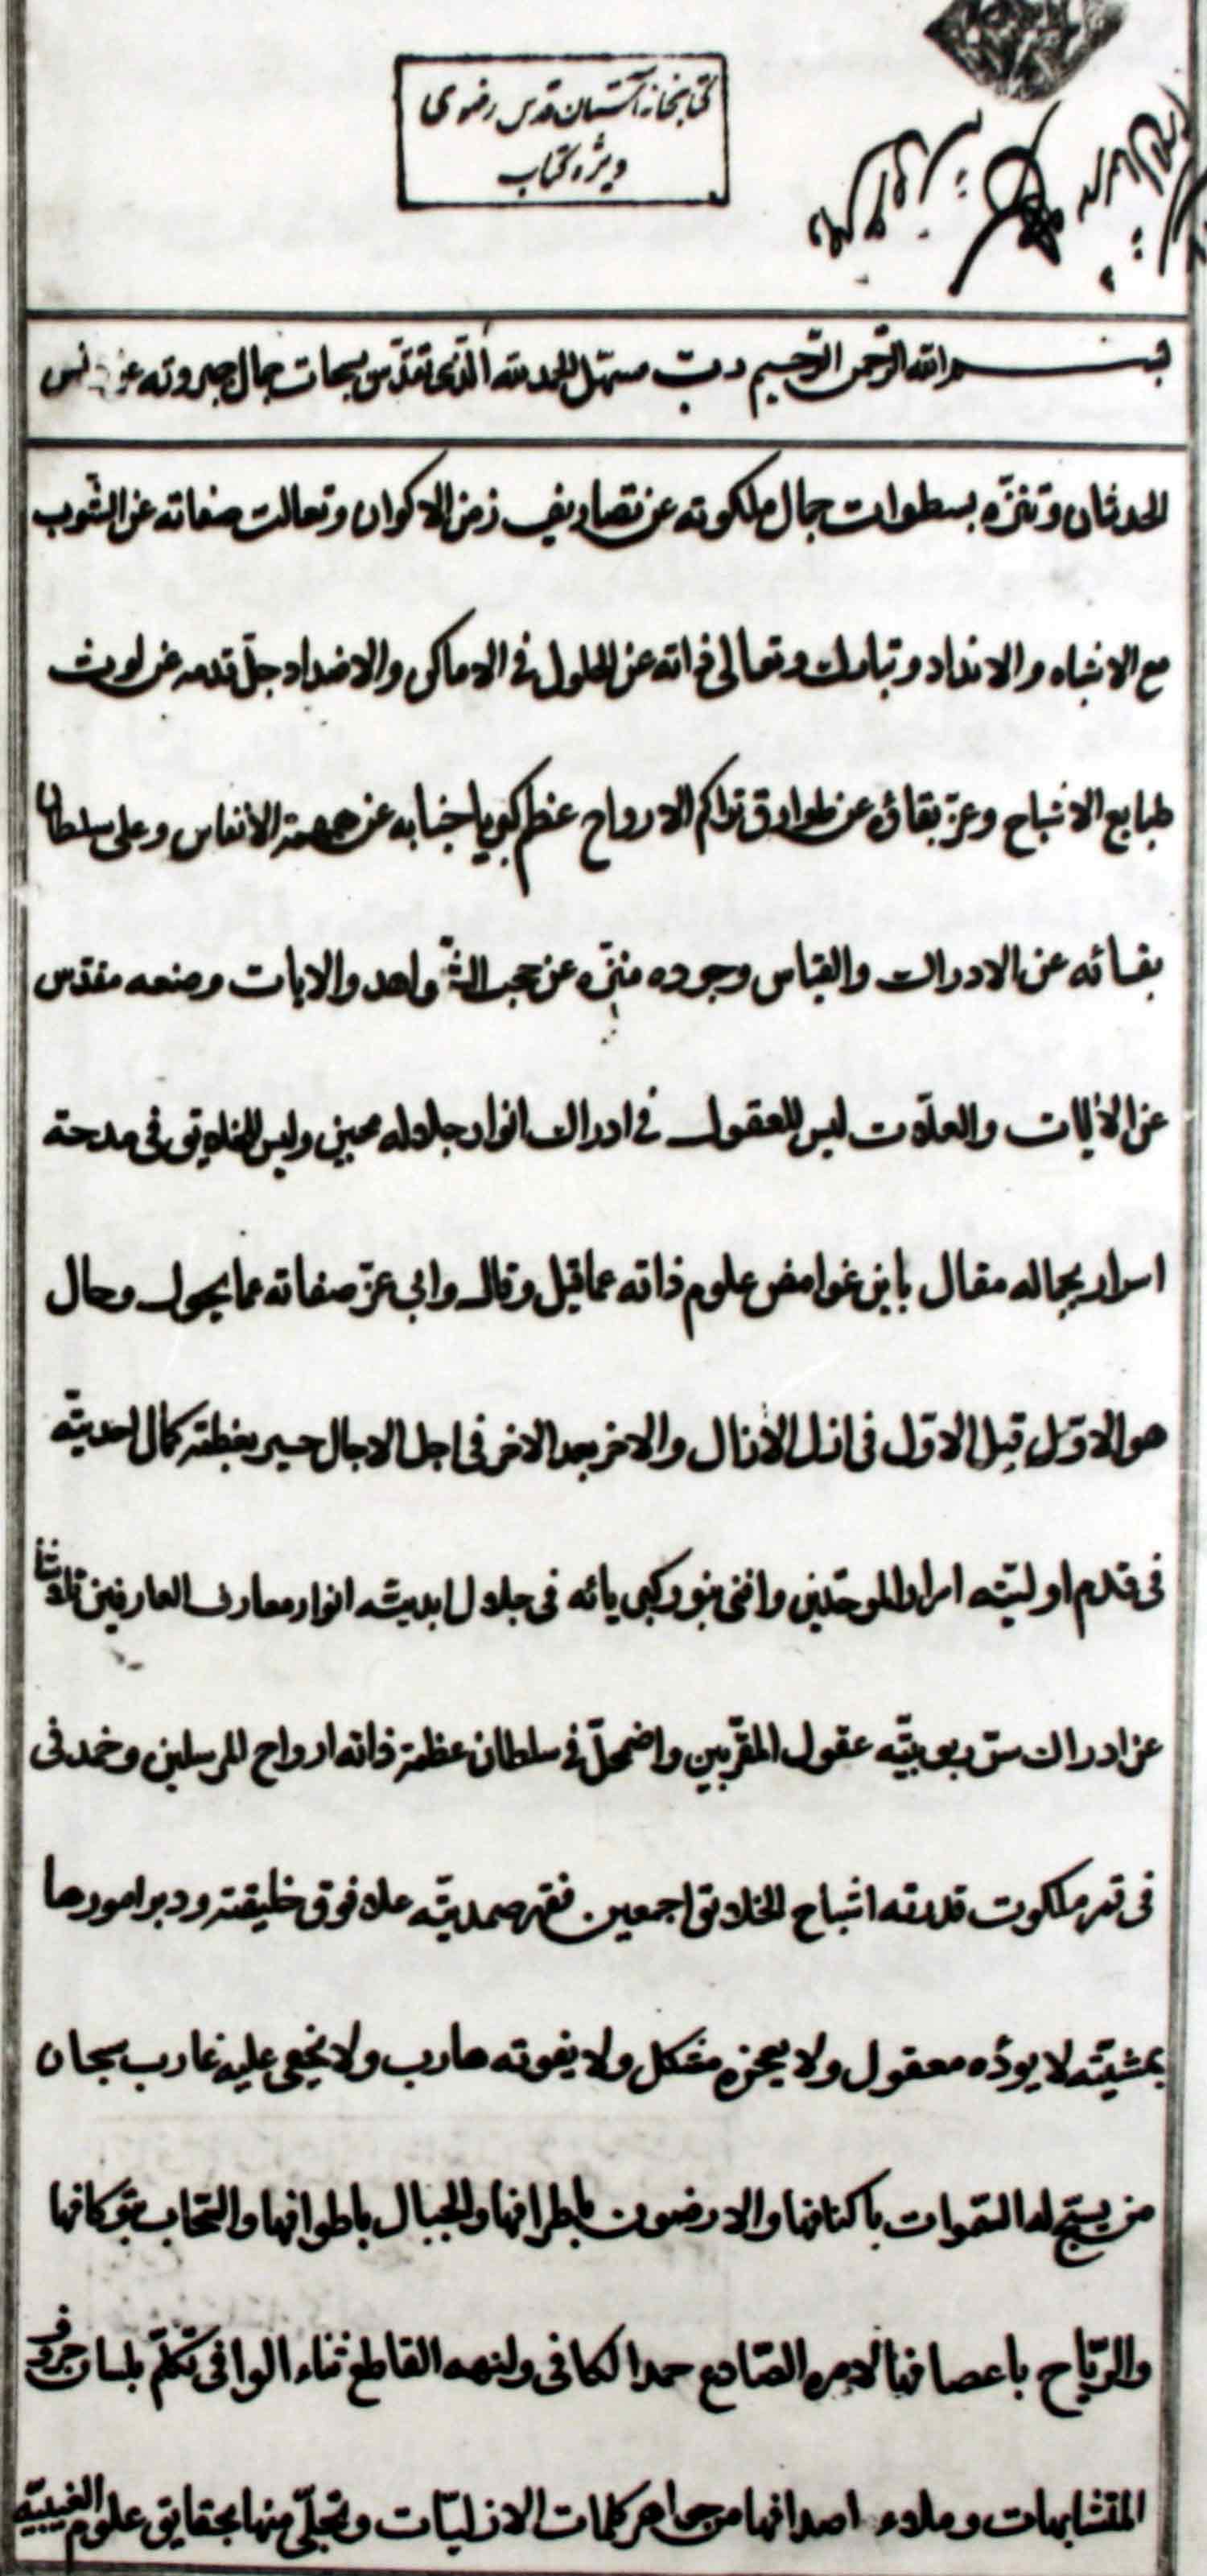 کتابخانه آستان قدس رضوی
ویژه کتاب
بسم الله الرحمن الرحیم رب سهّل الحمد لله الّذی تقدّس بسبحات جمال جبروته عن
الحدثان وتنزّه بسطوات جمال ملکوته عن تصاریف زمن الاکوان وتعالت صفاته عن الشوب
مع الاشباه والانداد وتبارک وتعالی ذاته عن الحلول فی الاماکن والاضداد جلّ قدمه عن لوث
طبایع الاشباح وعزّ بقاؤه عن طوارق تراکم الارواح عظم کبریا جنابه عن همهمة الأنفاس وعلی سلطان
بقائه عن الادراک والقیاس وجوده منزّه عن حجب الشّواهد والایات وصنعه مقدّس
عن الألیات والعلاّت لیس للعقول فی ادراک انوار جلاله مبین ولیس للخلایق فی مدحة
اسرار جماله مقال باین غوامض علوم ذاته عما قیل وقال وابی عزّ صفاته عما یحول وحال
هو الاوّل قبل الاوّل فی ازل الأزال والاخر بعد الاخر فی اجل الاجال حسیر بغطة کمال احدیّته
فی قدم اولیّته اسرار الموحّدین وافنی بنور کبریائه فی جلال ابدیته انوار معارف العارفین تلاشا
عن ادراک ستر ربوبیّه عقول المقرّبین واضمحلّ فی سلطان عظمة ذاته ارواح المرسلین وخمد فی
فی قهر ملکوت قدرته اشباح الخلایق اجمعین فقهر صمدیّته علا فوق خلیقته ودبر امورها
بمشیّته لا یودّه معقول ولا یعجزه مشکل ولا یفوته هارب ولا یخفی علیه غارب سبحان
من یسبّح له السّموات باکنافها والارضون باطرافها والجبال باطوافها والسّحاب بتوکافها
والرّیاح باعصافها لامره الصّادع حمدا لکافی ولنهیه القاطع ثناء الوافی تکلّم بلسان حروف
المتشابهات وملاء اصدافها من جواهر کلمات الازلیّات وتجلّی منها بحقایق علوم الغیبیّة